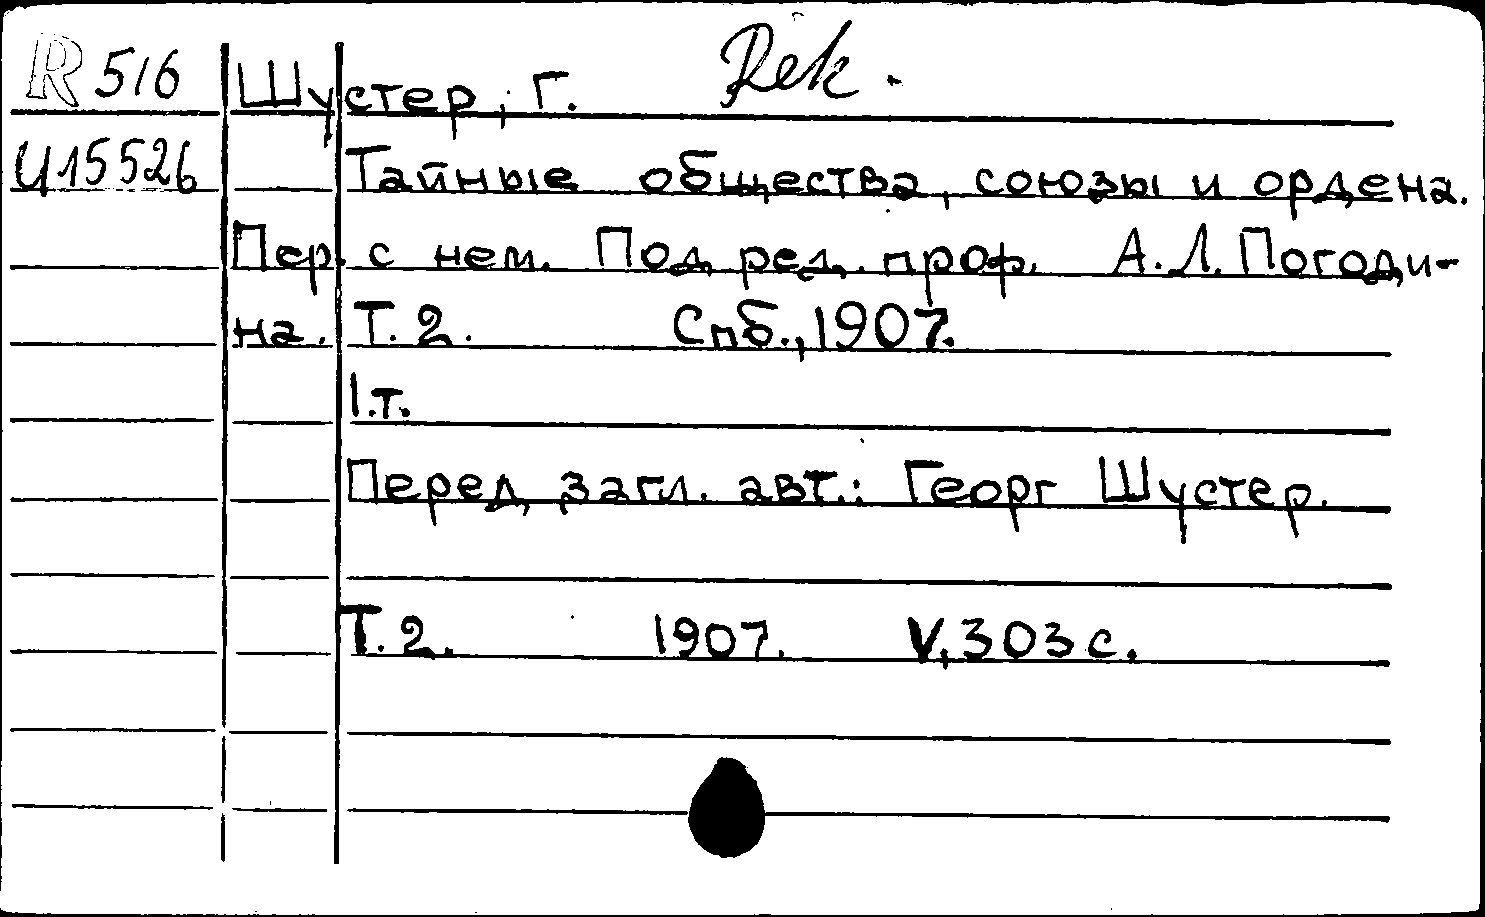 R 516 Шустер, Г. Rek.
U15526 Тайные общества, союзы и ордена.
Пер. с нем. Под ред. проф. А.Л. Погоди-
на. Т. 2. Спб., 1907.
1.т.
Перед загл. авт.: Георг Шустер.
Т. 2. 1907. V, 303 с.